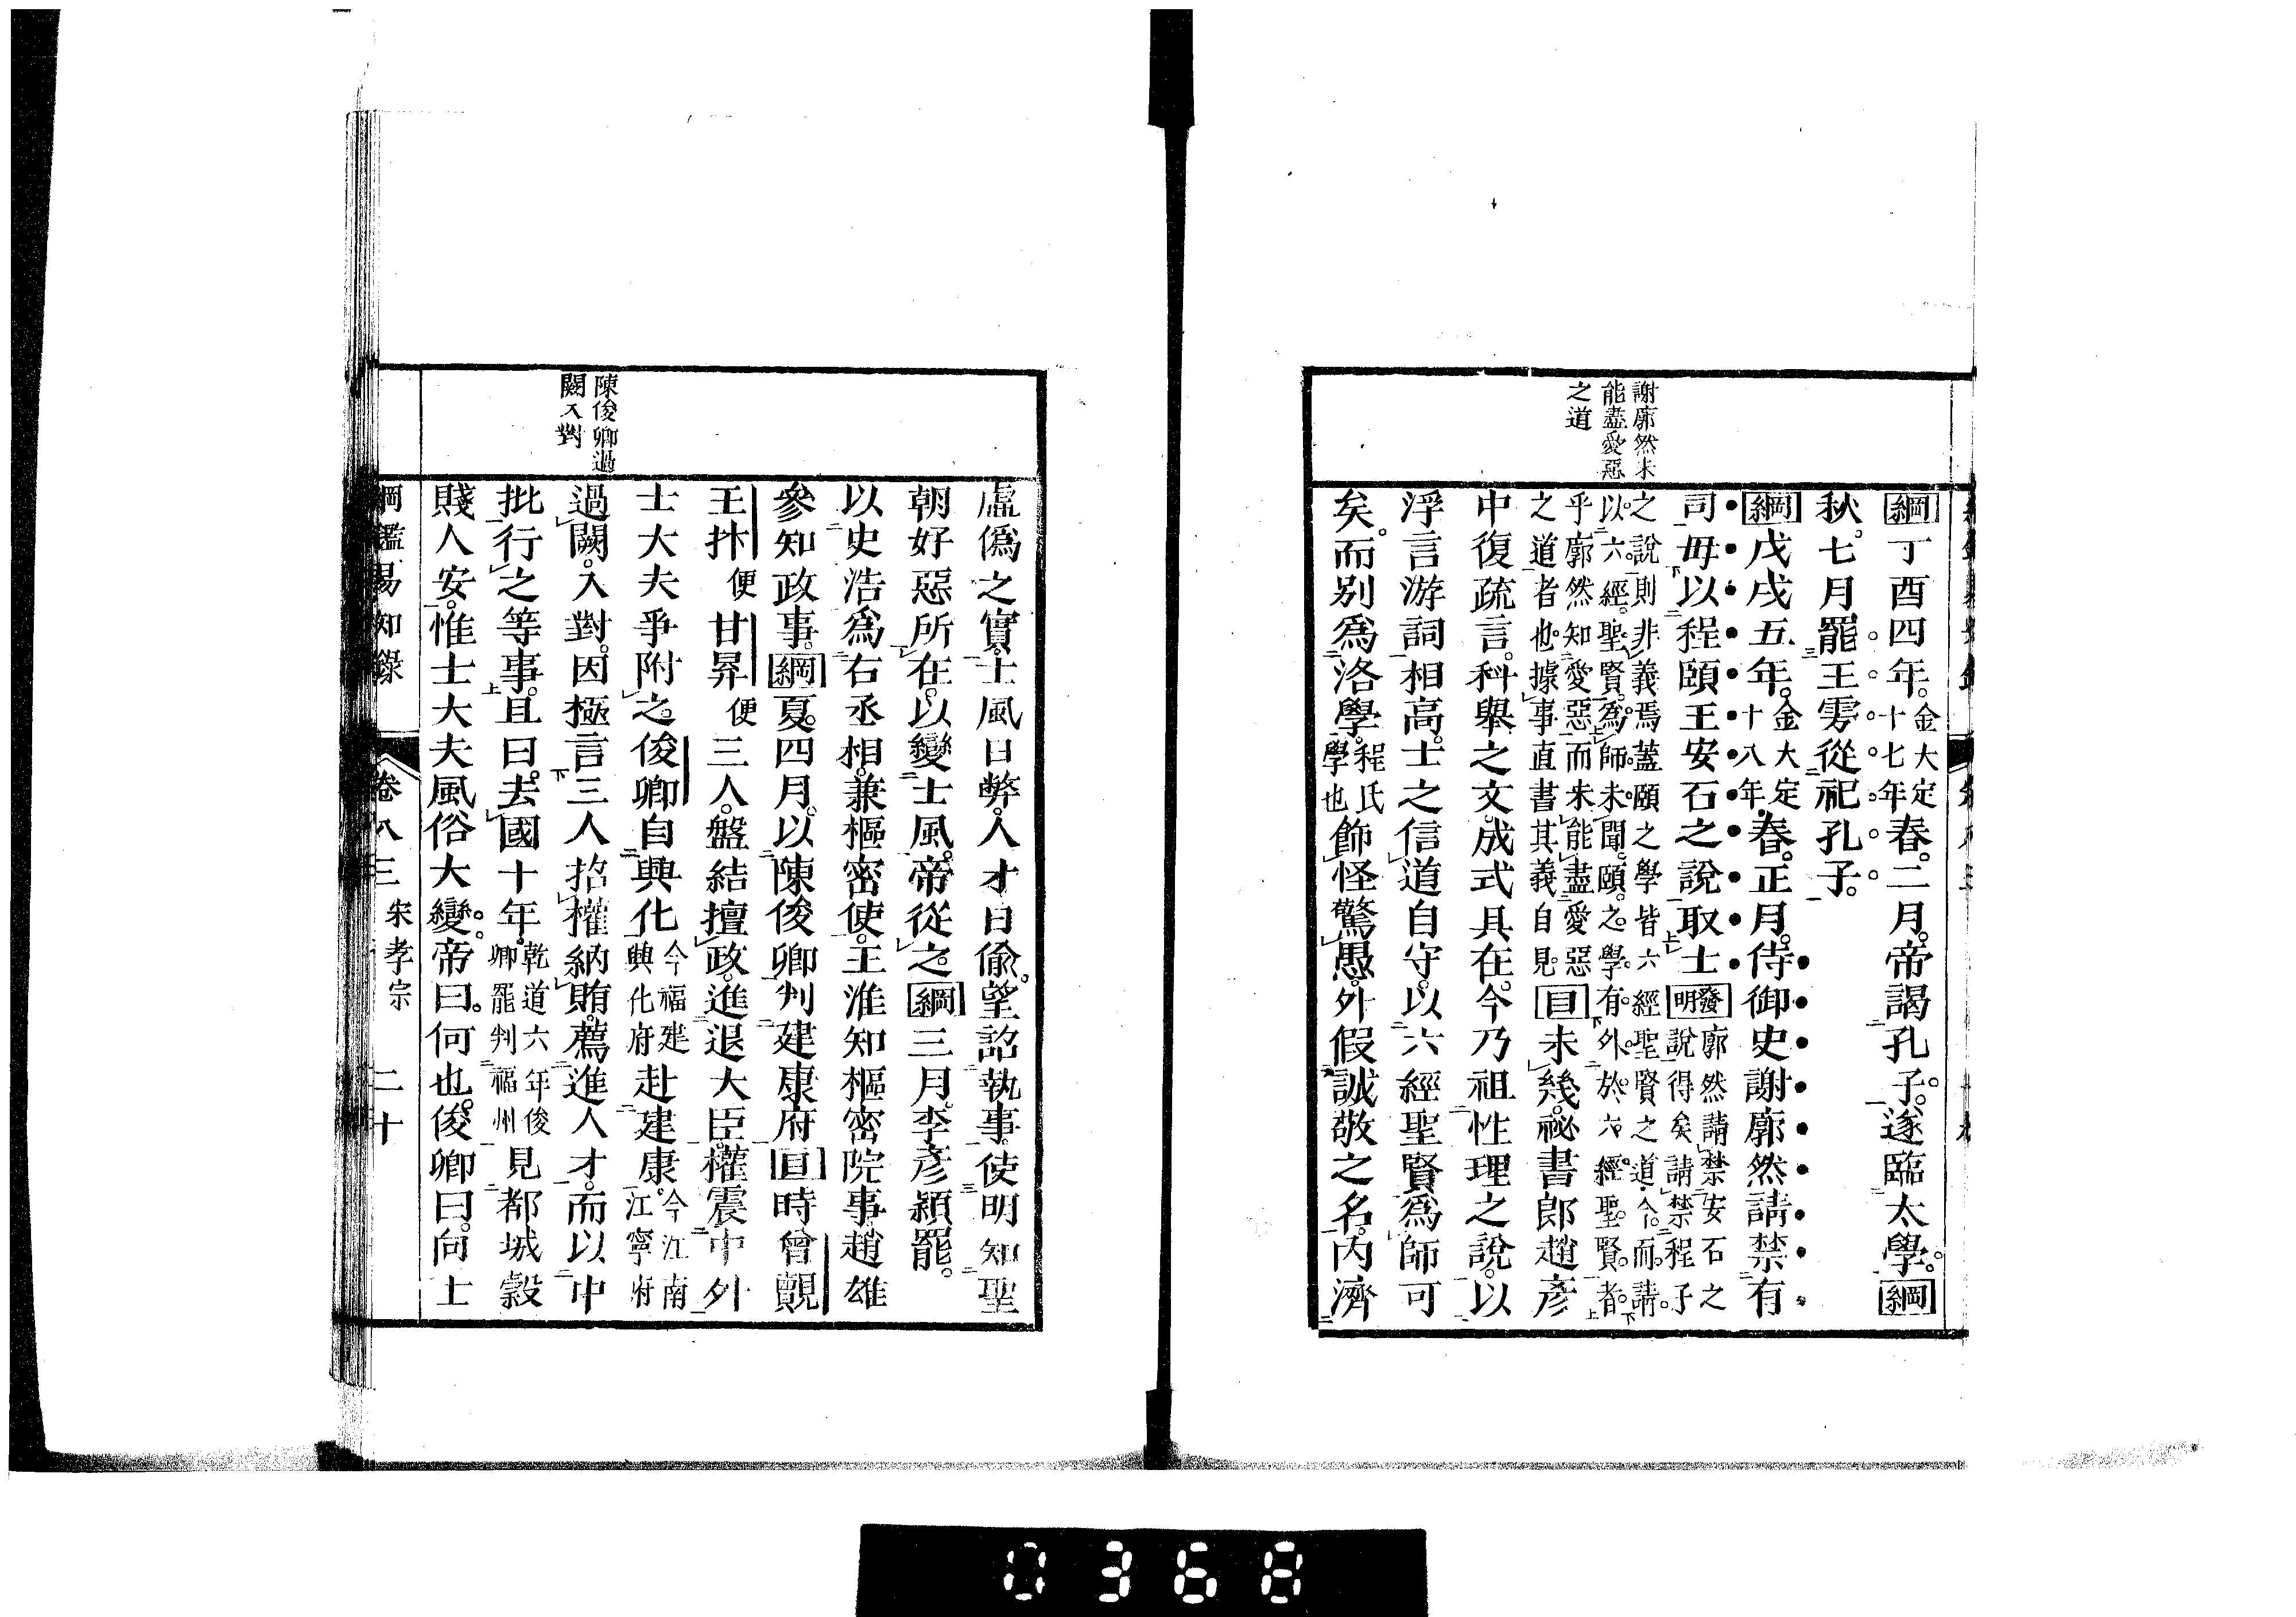 謝廓然未
能盡愛惡
之道
綱丁酉四年。金大定十七年春。二月。帝謁孔子。遂臨太學。綱
秋。七月。罷王雱從祀孔子。
綱戊戌五年。金大定十八年。春。正月。侍御史謝廓然請禁有
司毋以程頤王安石之說取士發明廓然請禁安石之說得矣請禁程子
之說則非義焉蓋頤之學皆六經聖賢之道今而請
以六經聖賢爲師未聞頤之學有外於六經聖賢者
乎廓然知愛惡而未能盡愛惡
之道者也據事直書其義自見目未幾。祕書郎趙彥
中復疏言。科舉之文。成式具在。今乃祖性理之說。以
浮言游詞相高。士之信道自守。以六經聖賢爲師可
矣。而別爲洛學。程氏學也飾怪驚愚。外假誠敬之名。內濟
陳俊卿過
闕入對
虛僞之實。士風日弊。人才日偷。望詔執事。使明知聖
朝好惡所在。以變士風。帝從之。綱三月。李彥穎罷。
以史浩爲右丞相。兼樞密使。王淮知樞密院事。趙雄
參知政事。綱夏。四月。以陳俊卿判建康府目時曾覿
王抃便甘昪便三人。盤結擅政。進退大臣。權震中外
士大夫爭附之。俊卿自興化今福建興化府赴建康。今江南江寧府
過闕。入對。因極言三人招權納賄。薦進人才。而以中
批行之等事。且曰。去國十年。乾道六年俊卿罷判福州見都城穀
賤人安。惟士大夫風俗大變。帝曰。何也。俊卿曰。向士
綱鑑易知錄 卷八三 宋孝宗 二十
0368